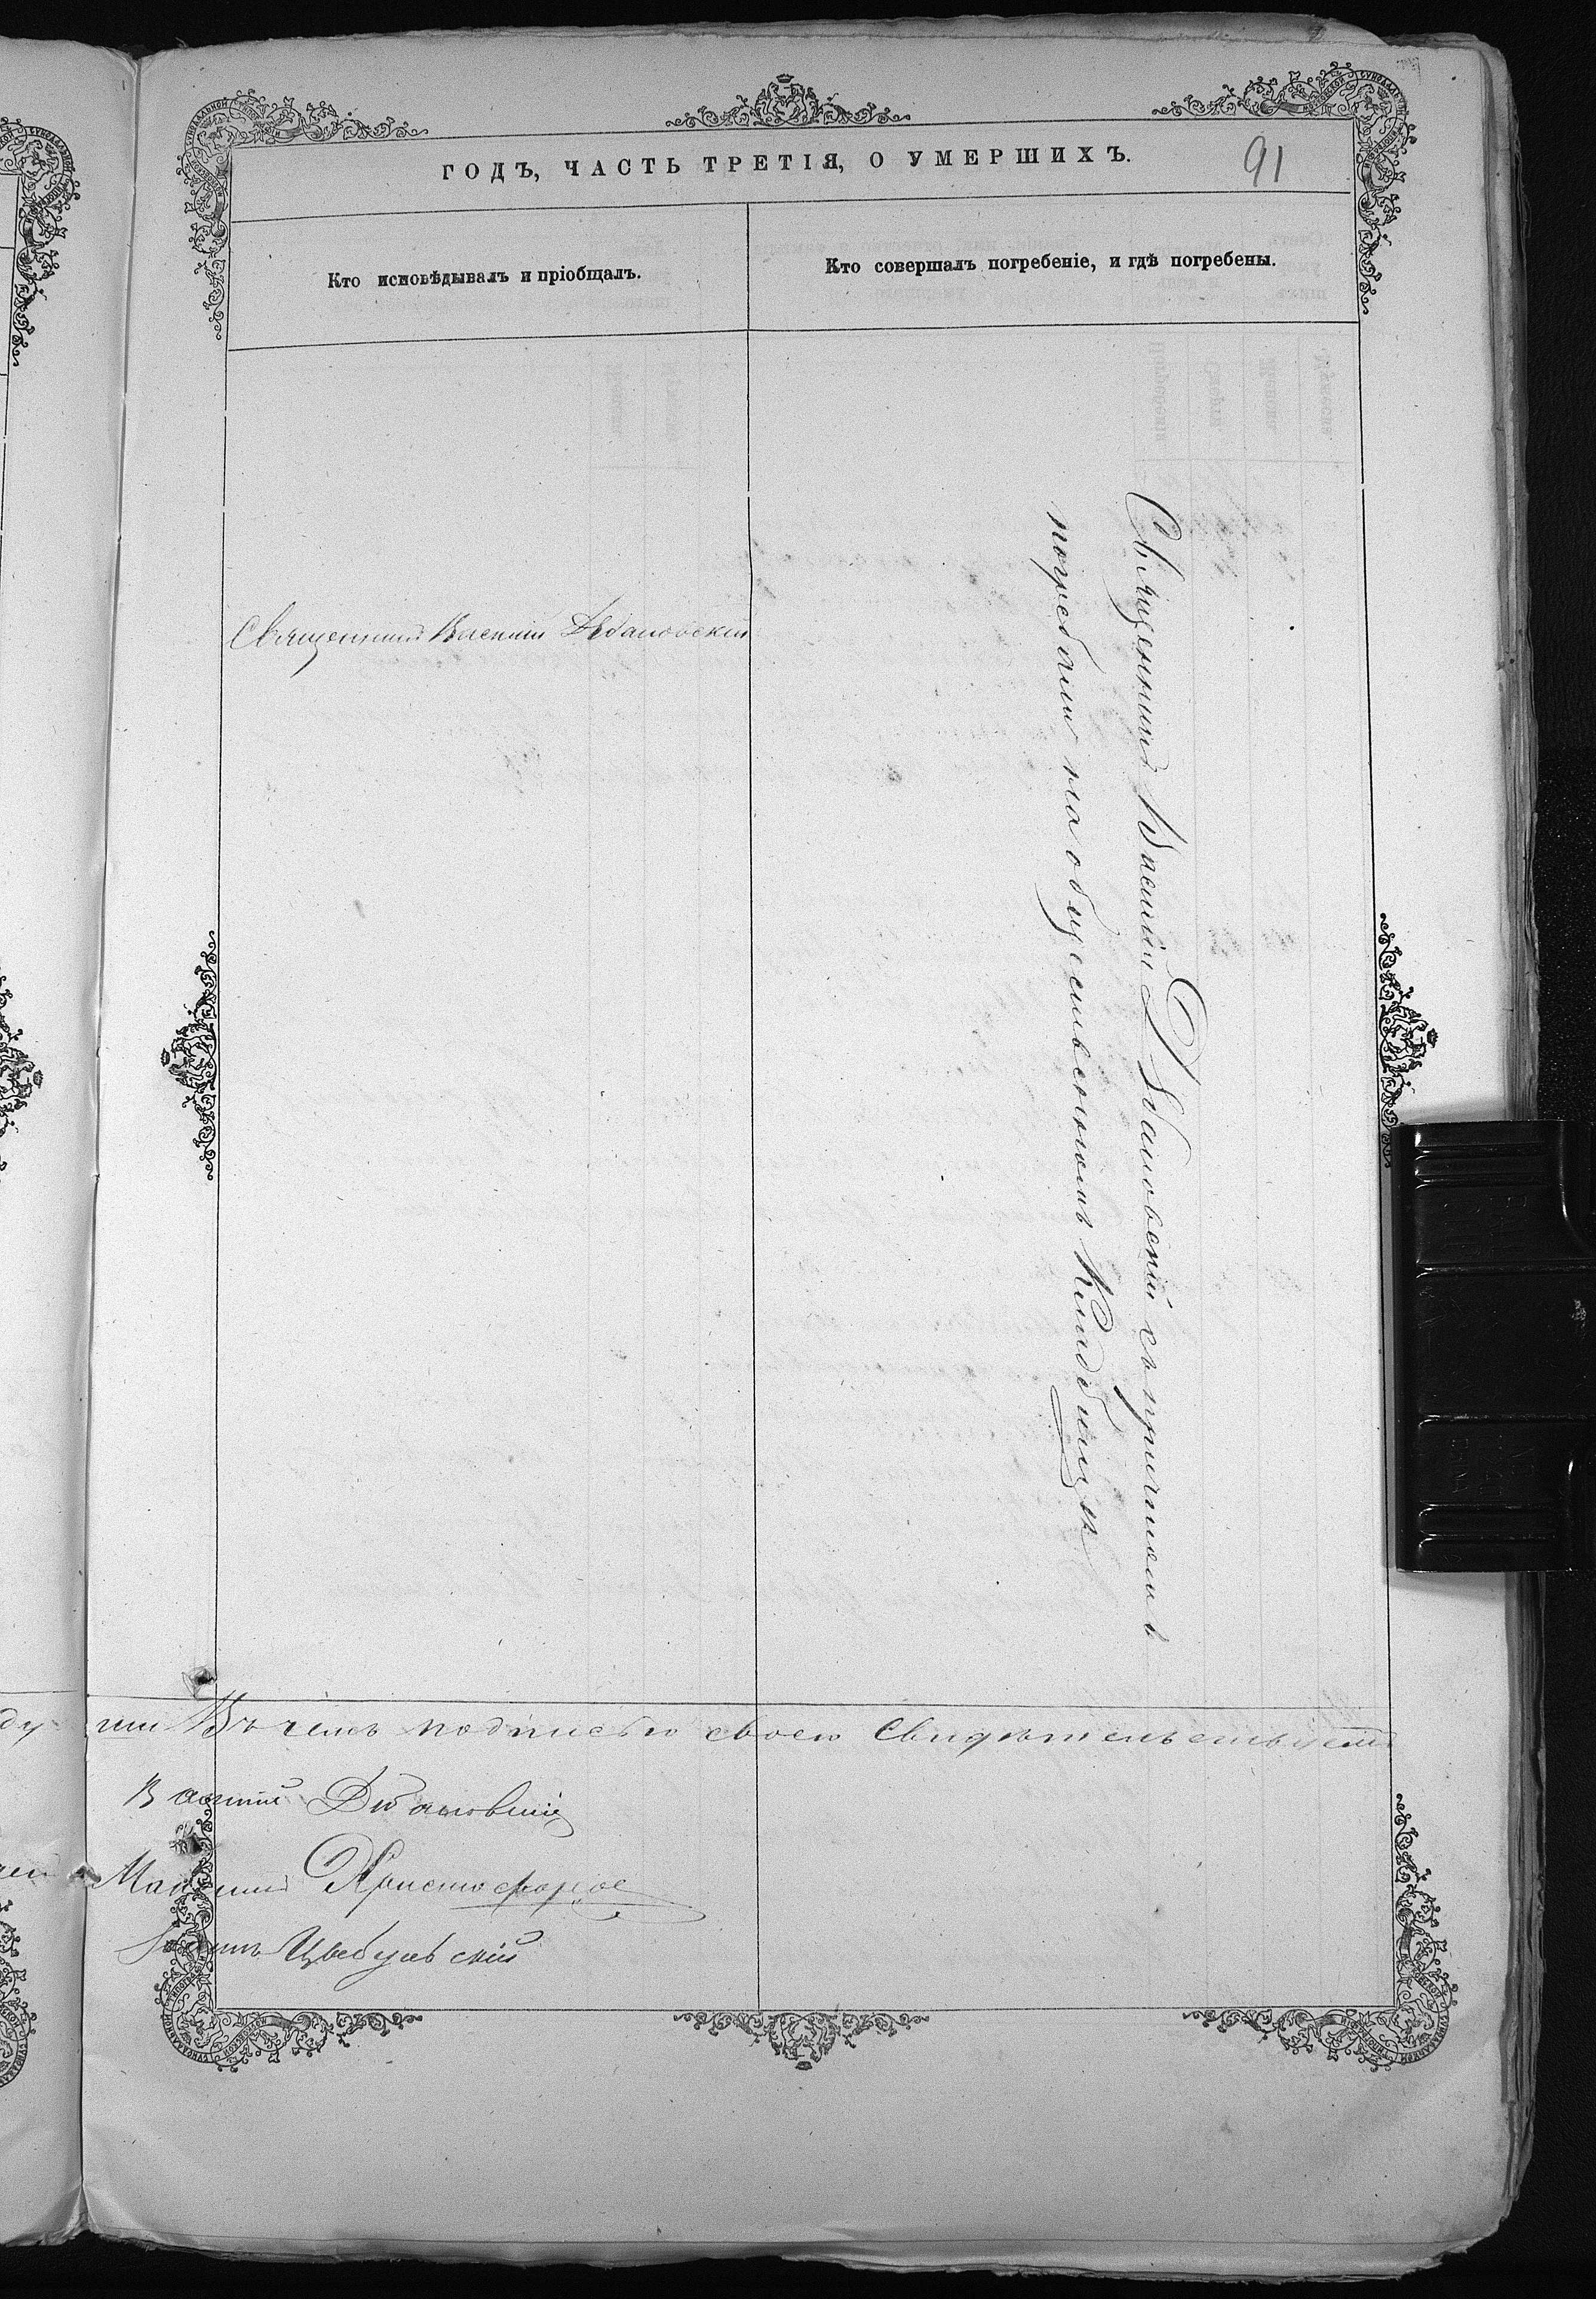 ГОДЪ, ЧАСТЬ ТРЕТІЯ, О УМЕРШИХЪ.
91
Кто исповѣдывалъ и пріобщалъ.
Кто совершалъ погребеніе, и гдѣ погребены.
Священникъ Василій Дѣбановскій
Священникъ Василій Дѣбановскій съ причтомъ
погребали на общественномъ Кладбищѣ
Въ чемъ подписью своею свидѣтельствуемъ
Василій
Христофоров
Цыбульскій